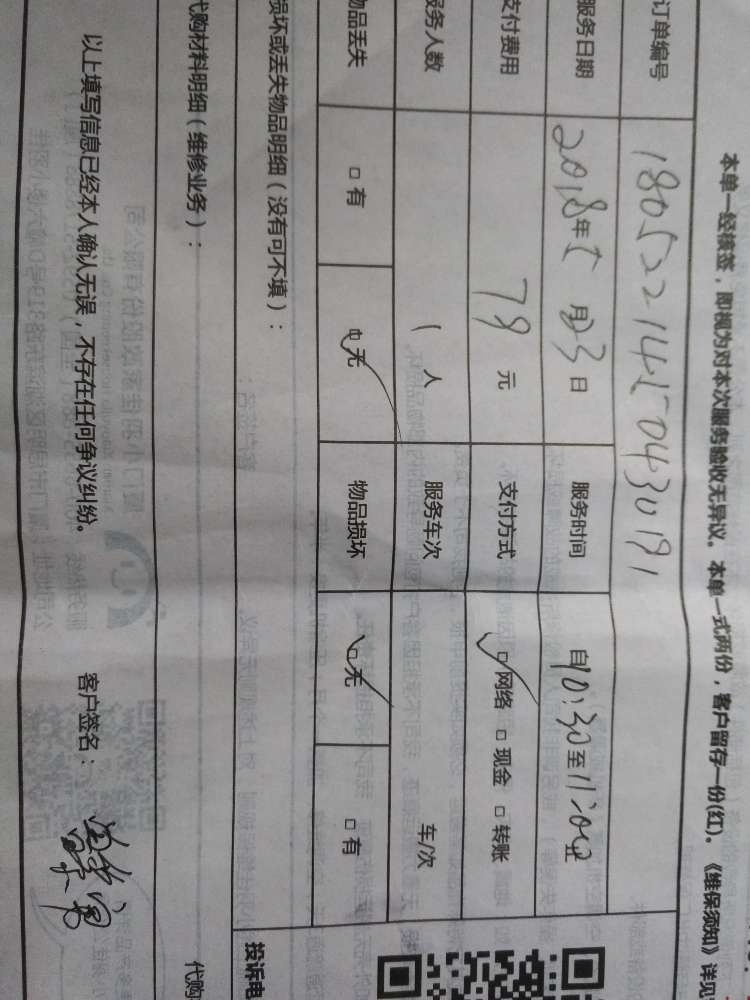 本单一经核签，即视为对本次服务验收无异议。本单一式两份，客户留存一份(红)。《维保须知》详见
订单编号 18052214150430191
服务日期 2018年5月23日 服务时间 自10:30至11:00止
支付费用 78元 支付方式 ☑网络 □现金 □转账
服务人数 1人 服务车次 车/次
物品丢失 □有 ☑无 物品损坏 ☑无 □有
损坏或丢失物品明细（没有可不填）：
投诉电
代购材料明细（维修业务）：
代购
以上填写信息已经本人确认无误，不存在任何争议纠纷。 客户签名：